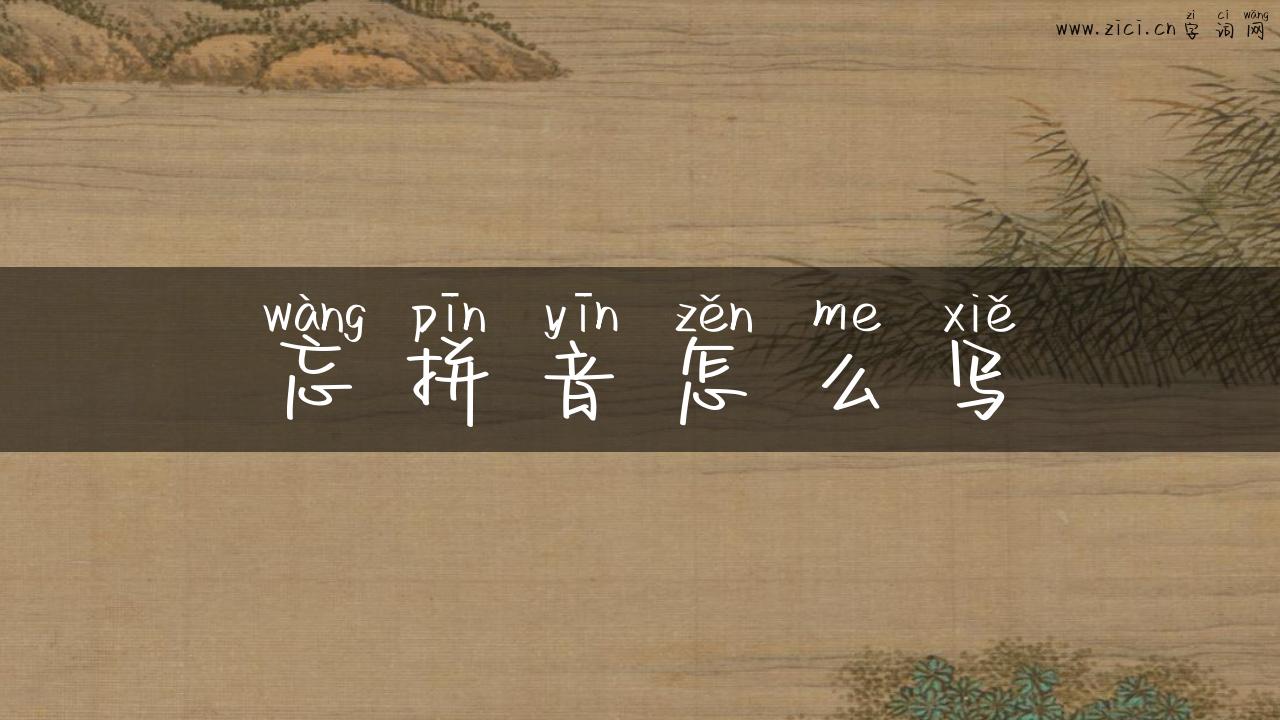 zi ci wǎng
www.zici.cn 字词网
wàng pīn yīn zěn me xiě
忘拼音怎么写